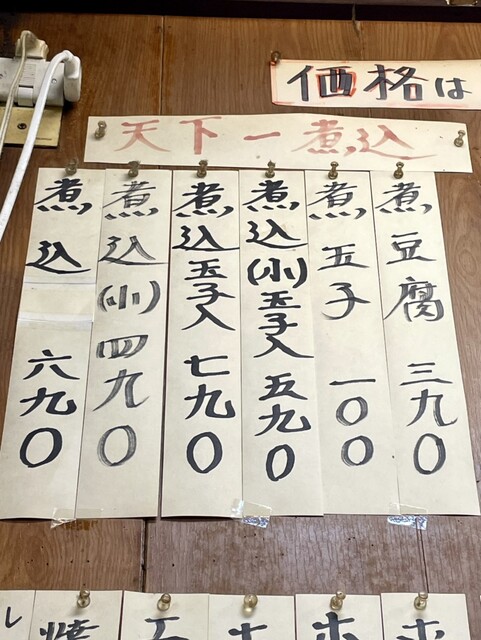 価格は
天下一煮込
煮豆腐 三九〇
煮玉子 一〇〇
煮込(小)玉子入 五九〇
煮込玉子入 七九〇
煮込(小) 四九〇
煮込 六九〇